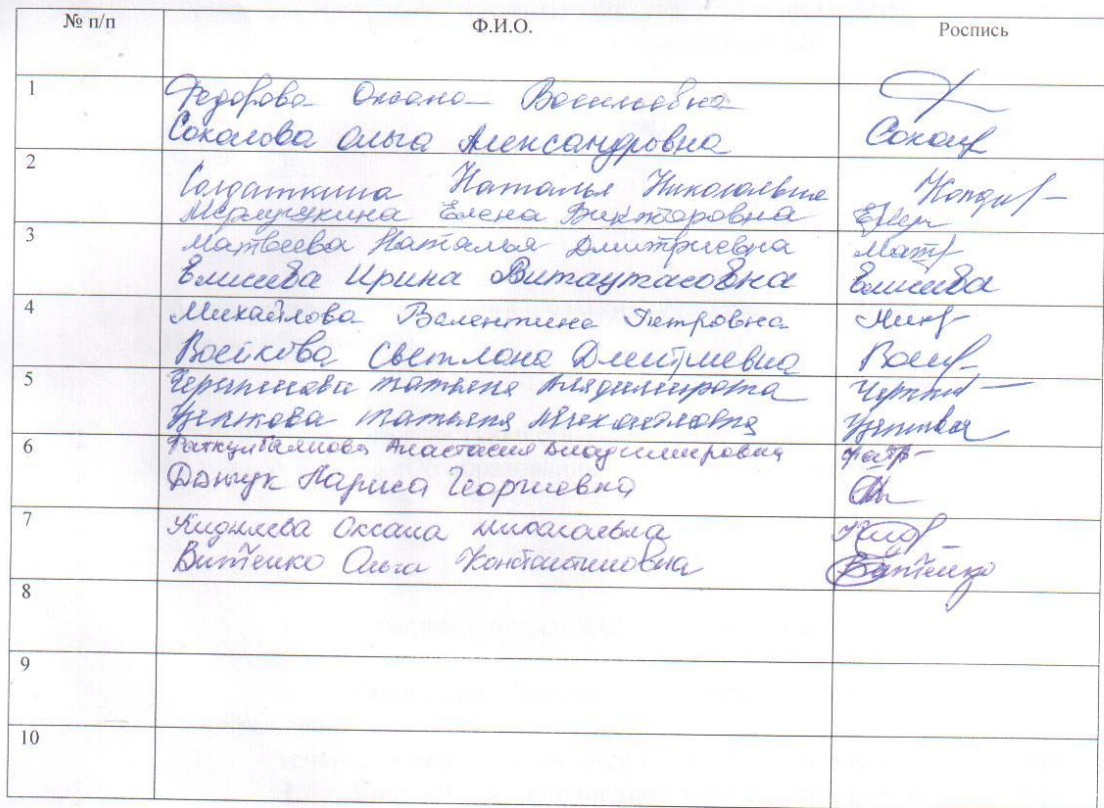 № п/п Ф.И.О. Роспись
1 Федорова Оксана Васильевна
Соколова Ольга Александровна
2 Солдаткина Наталья Николаевна
Елена Викторовна
3 Матвеева Наталья Дмитриевна Матв
Елисеева Ирина Витаутасовна Елисеева
4 Михайлова Валентина Петровна
Воейкова Светлана Дмитриевна
5 Татьяна Владимировна
Татьяна Михайловна
6 Анастасия Владимировна
Данчук Лариса Георгиевна
7 Оксана Николаевна
Витченко Ольга Константиновна Витченко
8
9
10